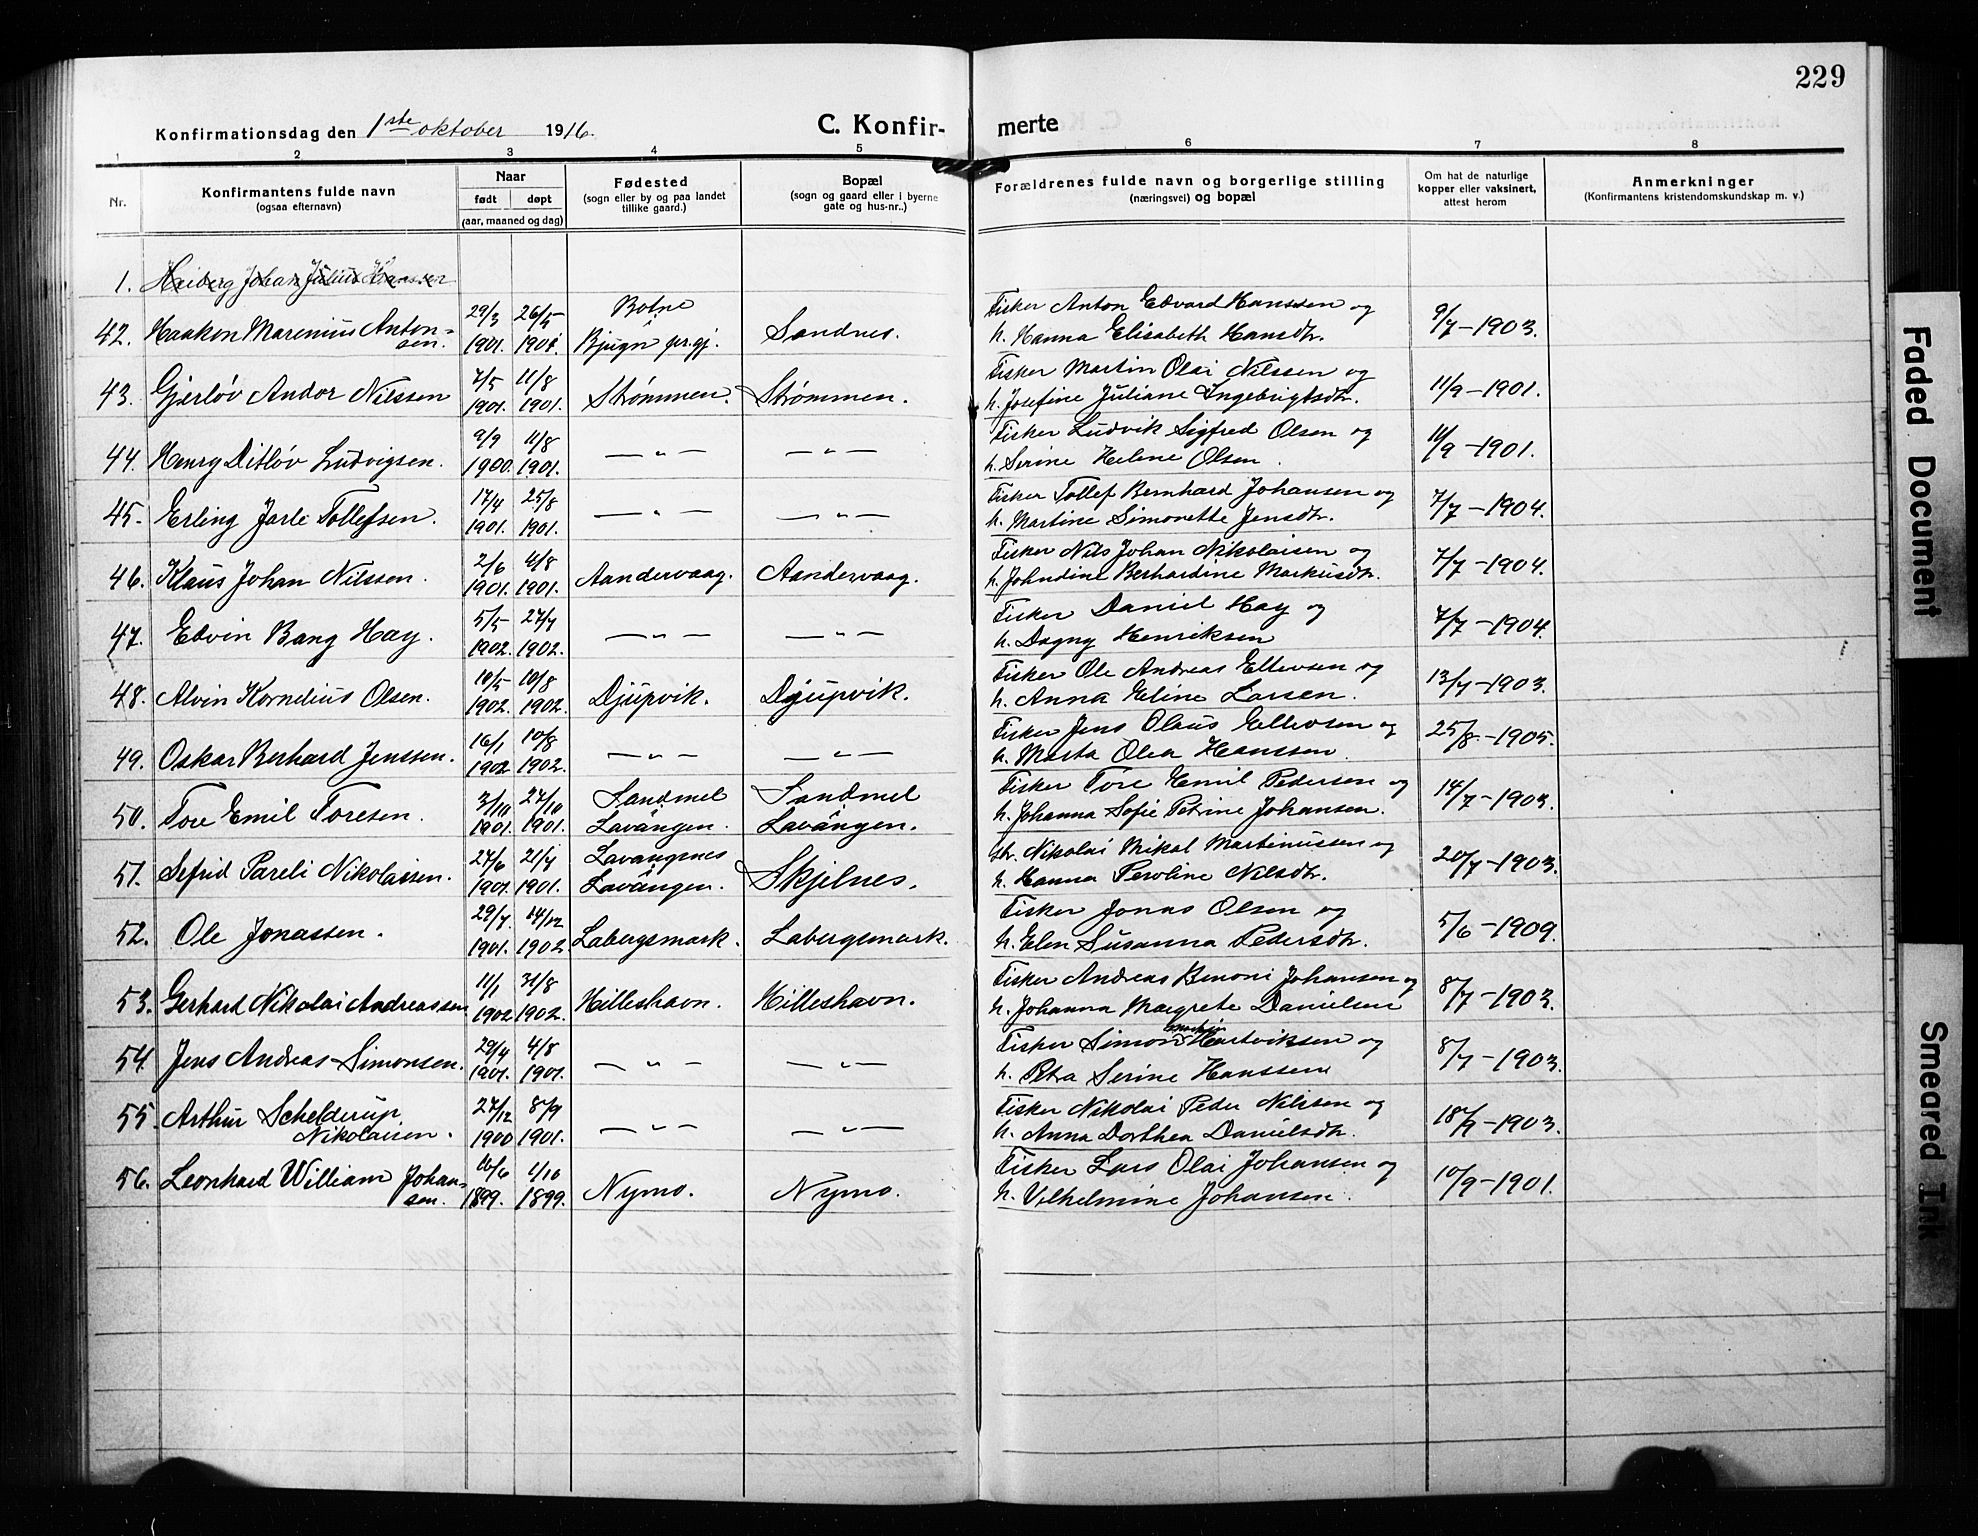 229
Konfirmationsdag den 1ste oktober 1916.
C. Konfir-
merte
1 2 3 4 5 6 7 8
Nr.
Konfirmantens fulde navn
(ogsaa efternavn)
Naar
født døpt
(aar, maaned og dag)
Fødested
(sogn eller by og paa landet
tillike gaard.)
Bopæl
(sogn og gaard eller i byerne
gate og hus-nr..)
Forældrenes fulde navn og borgerlige stilling
(næringsvei) og bopæl
Om hat de naturlige
kopper eller vaksinert,
attest herom
Anmerkninger
(Konfirmantens kristendomskundskap m. v.)
1. Heiberg Johan Julius Hanssen
29/3 26/5 Botne Fisker Anton Edvard Hanssen og
42. Haakon Marenius Anton-
sen. 1901. 1901. Bjugn pr.gj. Sandnes. h. Hanna Elisabeth Hansdtr. 9/7-1903.
7/5 11/8 Fisker Martin Olai Nilssen og
43. Gjerløv Andor Nilssen 1901. 1901. Strømmen. Strømmen. h. Josefine Juliane Ingebrigtsdtr. 11/9-1901.
9/9 11/8 Fisker Ludvik Sigfred Olsen og
44. Henry Ditløv Ludvigsen. 1900. 1901. —"— —"— h. Serine Helene Olsen. 11/9-1901.
17/4 25/8 Fisker Tollef Bernhard Johansen og
45. Erling Jarle Tollefsen. 1901. 1901. —"— —"— h. Martine Simonette Jensdtr. 7/7-1904.
2/6 4/8 Fisker Nils Johan Nikolaisen og
46. Klaus Johan Nilssen. 1901. 1901. Aandervaag. Aandervaag. h. Johndine Berhardine Markusdtr. 7/7-1904.
5/5 27/7 Fisker Daniel Hay og
47. Edvin Bang Hay. 1902. 1902. —"— —"— h. Dagny Henriksen 7/7-1904.
10/5 10/8 Fisker Ole Andreas Ellevsen og
48. Alvin Kornelius Olsen. 1902. 1902. Djupvik. Djupvik. h. Anna Eline Larsen. 13/7-1903.
16/1 10/8 Fisker Jens Olaus Ellevsen og
49. Oskar Berhard Jenssen. 1902. 1902. —"— —"— h. Marta Olea Hanssen 25/8-1905.
3/10 27/10 Sandmel Sandmel Fisker Tore Emil Pedersen og
50. Tore Emil Toresen. 1901. 1901. Lavangen. Lavangen. h. Johanna Sofie Petrine Johansen. 14/7-1903.
27/6 21/7 Lavangsnes Nikolai Mikal Martinussen og
51. Sefrid Pareli Nikolaisen. 1901. 1901. Lavangen. Skjelnes. h. Hanna Peroline Nilsdtr. 20/7-1903.
29/7. 14/12 Fisker Jonas Olsen og
52. Ole Jonassen. 1901. 1902. Labergsmark. Labergsmark. h. Elen Susanna Pedersdtr. 5/6-1909.
11/1 31/8 Fisker Andreas Benoni Johansen og
53. Gerhard Nikolai Andreassen 1902 1902. Hilleshavn. Hilleshavn. h. Johanna Margrete Danielsen 8/7-1903.
29/4 4/8 Fisker Simon Martin Hartviksen og
54. Jens Andreas Simonsen. 1901. 1901. —"— —"— h. Petra Serine Hanssen 8/7-1903.
27/12 8/9 Fisker Nikolai Peder Nilssen og
55. Arthur Schelderup
Nikolaisen. 1900 1901. —"— —"— h. Anna Dorthea Danielsdtr. 18/7-1903.
16/6 1/10 Fisker Lars Olai Johansen og
56. Leonhard William Johan-
sen. 1899. 1899. Nymo. Nymo. h. Vilhelmine Johansen. 10/9-1901.
Faded Document
Smeared Ink